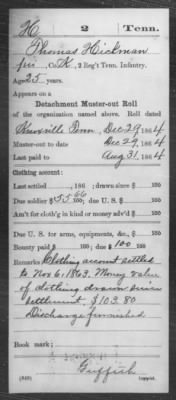 H 2 Tenn.
Thomas Hickman
Co. K, 2 Reg't Tenn. Infantry.
Age 25 years.
Appears on a
Detachment Muster-out Roll
of the organization named above. Roll dated
Knoxville Tenn, Dec 29, 1864.
Muster-out to date Dec 29, 1864.
Last paid to Aug 31, 1864.
Clothing account:
Last settled , 186 ; drawn since $ 100
Due soldier $55 66/100; due U. S. $ 100
Am't for cloth'g in kind or money adv'd $ 100
Due U. S. for arms, equipments, &c., $ 100
Bounty paid $ 100; due $ 100 100
Remarks: Clothing account settled
to Nov 6, 1863. Money value
of clothing drawn since
settlement $103.80
Discharge furnished
Book mark:
(849) Copyist.